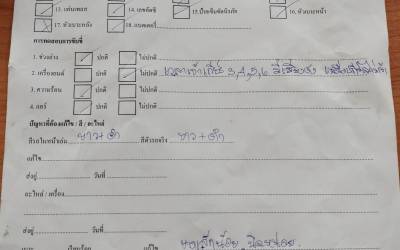 13. เล่มเพลท 14. เลขตัวถัง 15. ปัจจเข็มขัดนิรภัย 16. หัวเบาะหน้า
17. หัวเบาะหลัง 18. แบตเตอรี่
การทดสอบการขับขี่
1. ช่วงล่าง ปกติ ไม่ปกติ
2. เครื่องยนต์ ปกติ ไม่ปกติ เวลาเข้าเกียร์ 3,4,5,6 มีเสียงดัง
3. ความร้อน ปกติ ไม่ปกติ
4. แอร์ ปกติ ไม่ปกติ
ปัญหาที่ต้องแก้ไข / สี / อะไหล่
สีรถในหน้าเล่ม ขาว+ดำ สีตัวรถจริง ขาว+ดำ
แก้ไข
ส่งอู่ วันที่
อะไหล่ / เครื่อง
ส่งอู่ วันที่
แก้ไข